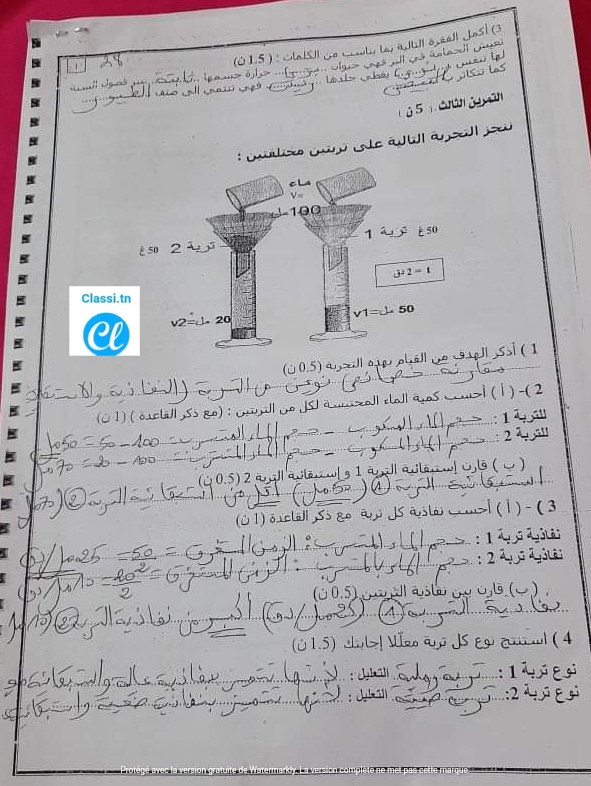 28
1
3) أكمل الفقرة التالية بما يناسب من الكلمات : (1.5 ن)
تعيش الحمامة في البر فهي حيوان ..بري... حرارة جسمها ..ثابتة.. عبر فصول السنة
لها تنفس رئوي يغطي جلدها : الريش فهي تنتمي الى صنف الطيور
كما تتكاثر بالبيض
التمرين الثالث ( 5 ن )
ننجز التجربة التالية على تربتين مختلفتين :
ماء
V=
100مل
50غ تربة 2
تربة 1 50غ
t = 2 دق
v2=مل 20
v1=مل 50
Classi.tn
Cl
1 ) أذكر الهدف من القيام بهذه التجربة (0.5 ن)
مقارنة خصائص نوعين من التربة (النفاذية والاستبقائية
2 )- ( أ ) أحسب كمية الماء المحتبسة لكل من التربتين : (مع ذكر القاعدة ) (1 ن)
للتربة 1 : حجم الماء المسكوب - حجم الماء المتسرب = 100 - 50 = 50مل
للتربة 2 : حجم الماء المسكوب - حجم الماء المتسرب = 100 - 20 = 70مل
( ب ) قارن إستبقائية التربة 1 و إستبقائية التربة 2 (0.5 ن)
استبقائية التربة 1 (50 مل) أقل من استبقائية التربة 2 (70مل)
3 )- ( أ ) أحسب نفاذية كل تربة مع ذكر القاعدة (1 ن)
نفاذية تربة 1 : حجم الماء المتسرب : الزمن المستغرق = 50 = 25مل/دق
نفاذية تربة 2 : حجم الماء المتسرب : الزمن المستغرق = 20/2 = 10مل/دق
( ب ) قارن بين نفاذية التربتين (0.5 ن)
نفاذية التربة 1 (25مل/دق) أكبر من نفاذية التربة 2 (10
4 ) استنتج نوع كل تربة معللا إجابتك (1.5 ن)
نوع تربة 1 : تربة رملية التعليل : لأنها تتميز بنفاذية عالية واستبقائية
نوع تربة 2: تربة طينية التعليل : لأنها تتميز بنفاذية ضعيفة واستبقائية
Protégé avec la version gratuite de Watermarkly. La version complète ne met pas cette marque.